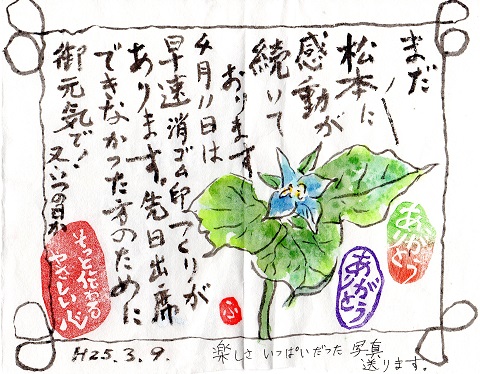 まだ
松本に
感動が
続いて
おります
4月11日は
早速消ゴム印つくりが
あります。先日出席
できなかった方のために
御元気で!
又いつの日か
ありがとう
ありがとう
そっと伝わる
やさしい心
ふ
H25.3.9.
楽しさ いっぱいだった 写真
送ります。